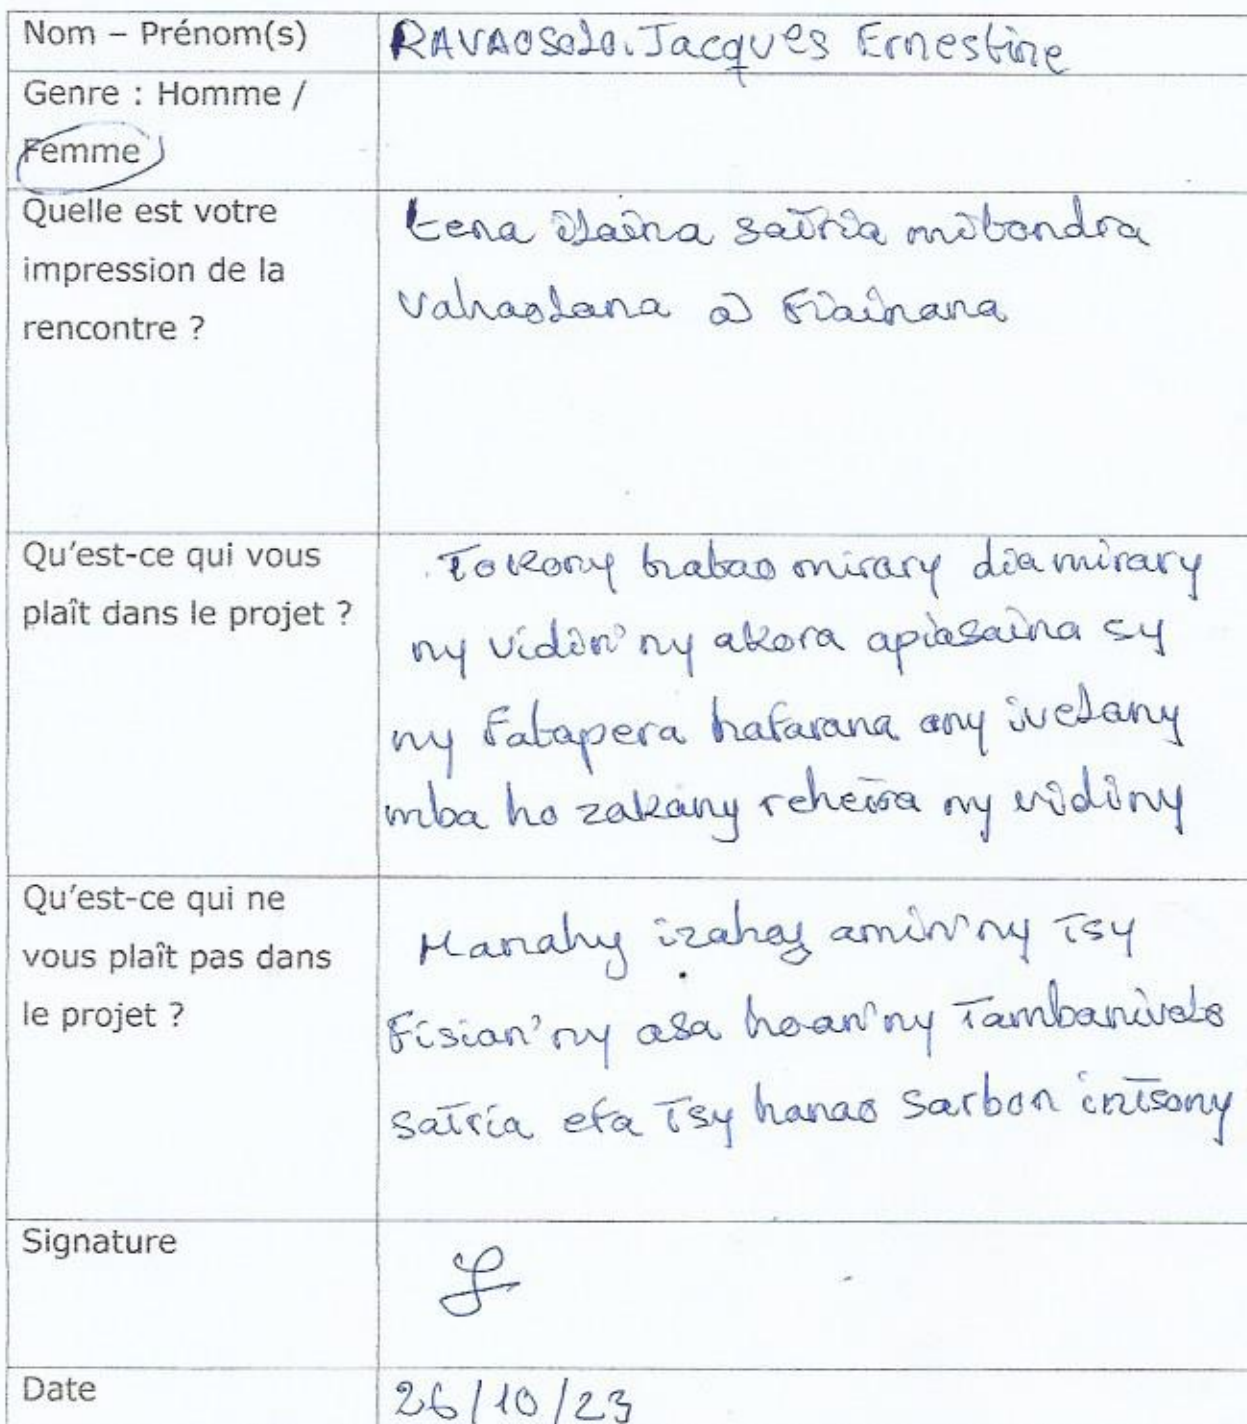 Nom – Prénom(s)
RAVAOSOLO. Jacques Ernestine
Genre : Homme /
Femme
Quelle est votre
impression de la
rencontre ?
tena ilaina satria mitondra
vahaolana a Fiainana
Qu'est-ce qui vous
plaît dans le projet ?
Tokony hatao mirary dia mirary
ny vidin'ny akora apiasaina sy
ny Fatapera hafarana any ivelany
mba ho zakany reheisa ny vidiny
Qu'est-ce qui ne
vous plaît pas dans
le projet ?
Manahy izahay amin'ny Tsy
Fisian'ny asa hoan'ny Tambanivolo
satria efa Tsy hanao sarbon intsony
Signature
Date
26/10/23